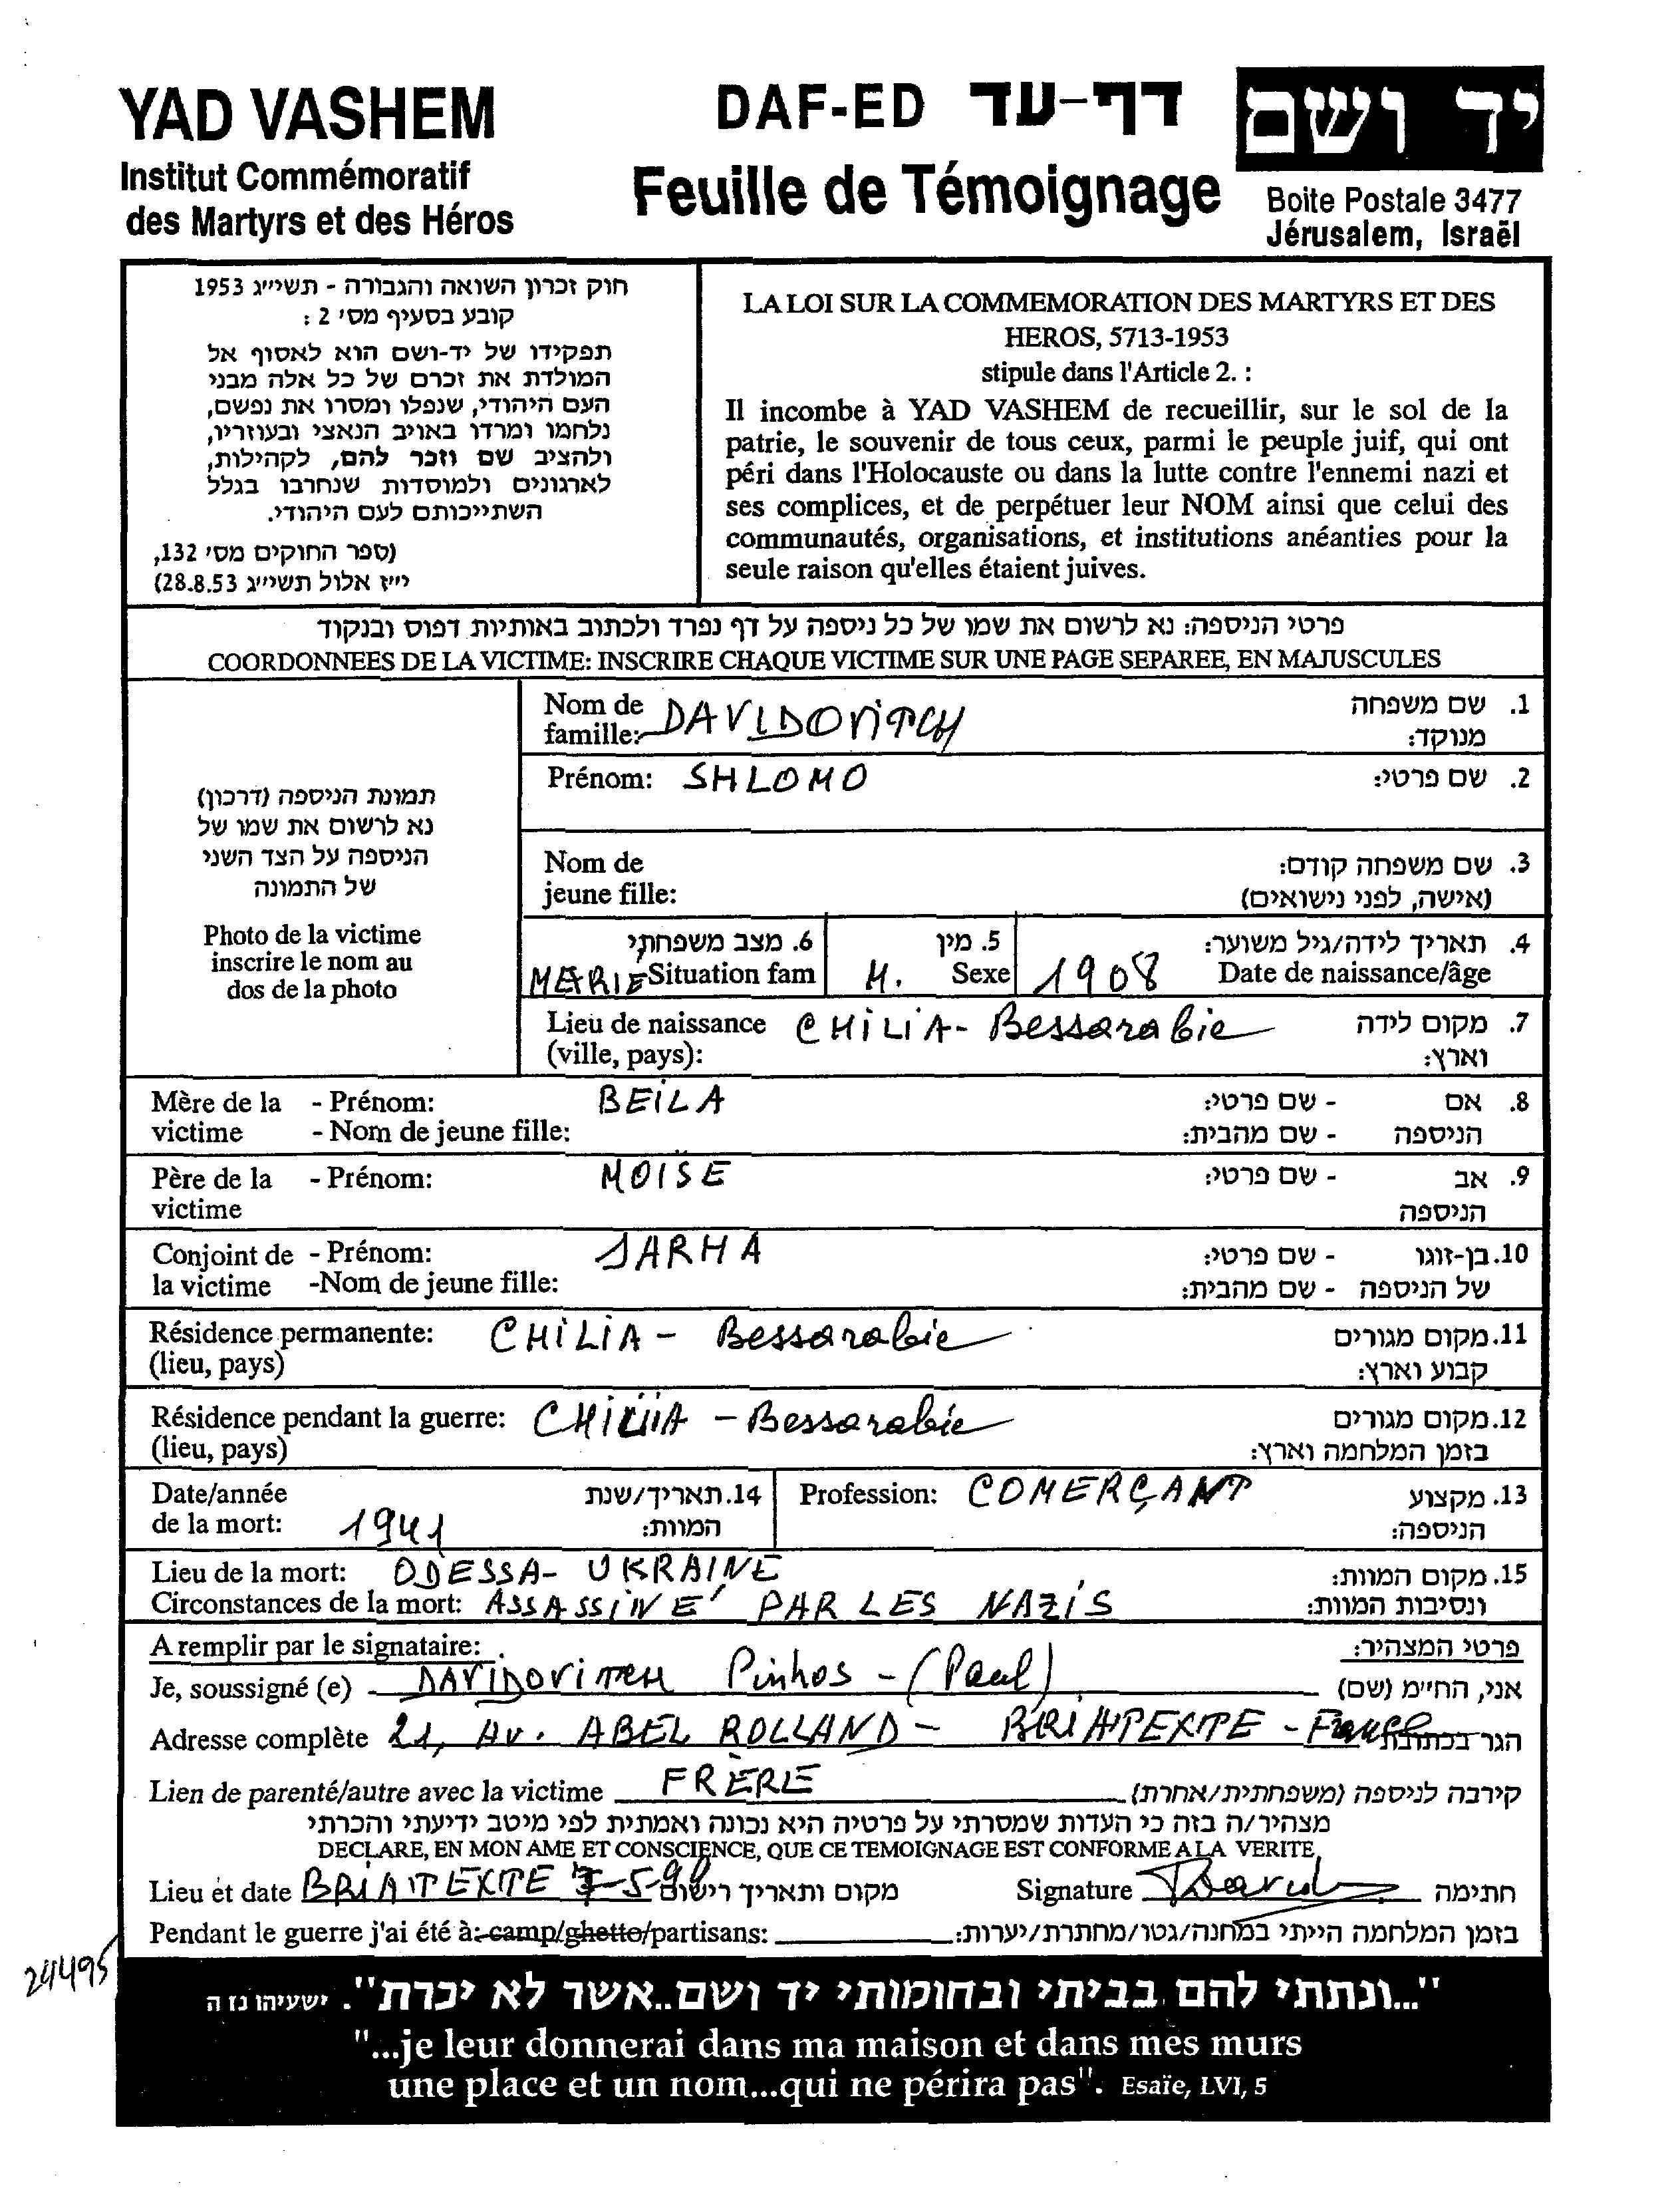 YAD VASHEM
Institut Commémoratif
des Martyrs et des Héros
DAF-ED דף-עד
Feuille de Témoignage
יד ושם
Boite Postale 3477
Jérusalem, Israël
חוק זכרון השואה והגבורה - תשי״ג 1953
קובע בסעיף מס׳ 2 :
תפקידו של יד-ושם הוא לאסוף אל
המולדת את זכרם של כל אלה מבני
העם היהודי, שנפלו ומסרו את נפשם,
נלחמו ומרדו באויב הנאצי ובעוזריו,
ולהציב שם וזכר להם, לקהילות,
לארגונים ולמוסדות שנחרבו בגלל
השתייכותם לעם היהודי.
(ספר החוקים מס׳ 132,
י״ז אלול תשי״ג 28.8.53)
LA LOI SUR LA COMMEMORATION DES MARTYRS ET DES
HEROS, 5713-1953
stipule dans l'Article 2. :
Il incombe à YAD VASHEM de recueillir, sur le sol de la
patrie, le souvenir de tous ceux, parmi le peuple juif, qui ont
péri dans l'Holocauste ou dans la lutte contre l'ennemi nazi et
ses complices, et de perpétuer leur NOM ainsi que celui des
communautés, organisations, et institutions anéanties pour la
seule raison qu'elles étaient juives.
פרטי הניספה: נא לרשום את שמו של כל ניספה על דף נפרד ולכתוב באותיות דפוס ובנקוד
COORDONNEES DE LA VICTIME: INSCRIRE CHAQUE VICTIME SUR UNE PAGE SEPAREE, EN MAJUSCULES
תמונת הניספה (דרכון)
נא לרשום את שמו של
הניספה על הצד השני
של התמונה
Photo de la victime
inscrire le nom au
dos de la photo
Nom de DAVIDOVITCH 1. שם משפחה
famille: מנוקד:
Prénom: SHLOMO 2. שם פרטי:
Nom de 3. שם משפחה קודם:
jeune fille: (אישה, לפני נישואים)
6. מצב משפחתי 5. מין 4. תאריך לידה/גיל משוער:
MARIE Situation fam M. Sexe 1908 Date de naissance/âge
Lieu de naissance CHILIA - Bessarabie 7. מקום לידה
(ville, pays): וארץ:
Mère de la - Prénom: BEILA - שם פרטי: 8. אם
victime - Nom de jeune fille: - שם מהבית: הניספה
Père de la - Prénom: MOÏSE - שם פרטי: 9. אב
victime הניספה
Conjoint de - Prénom: SARHA - שם פרטי: 10. בן-זוגו
la victime -Nom de jeune fille: - שם מהבית: של הניספה
Résidence permanente: CHILIA - Bessarabie 11. מקום מגורים
(lieu, pays) קבוע וארץ:
Résidence pendant la guerre: CHILIIA - Bessarabie 12. מקום מגורים
(lieu, pays) בזמן המלחמה וארץ:
Date/année 14. תאריך/שנת Profession: COMERÇANT 13. מקצוע
de la mort: 1941 המוות: הניספה:
Lieu de la mort: ODESSA - UKRAINE 15. מקום המוות:
Circonstances de la mort: ASSASSINÉ PAR LES NAZIS ונסיבות המוות:
A remplir par le signataire: פרטי המצהיר:
Je, soussigné (e) DAVIDOVITCH Pinhos - (Paul) אני, החי״מ (שם)
Adresse complète 21, AV. ABEL ROLLAND - BRIATEXTE - France הגר בכתובת
Lien de parenté/autre avec la victime FRÈRE קירבה לניספה (משפחתית/אחרת)
מצהיר/ה בזה כי העדות שמסרתי על פרטיה היא נכונה ואמתית לפי מיטב ידיעתי והכרתי
DECLARE, EN MON AME ET CONSCIENCE, QUE CE TEMOIGNAGE EST CONFORME A LA VERITE
Lieu et date BRIATEXTE 7-5-98 מקום ותאריך רישום Signature חתימה
Pendant le guerre j'ai été à: camp/ghetto/partisans: בזמן המלחמה הייתי במחנה/גטו/מחתרת/יערות:
24495
"...ונתתי להם בביתי ובחומותי יד ושם..אשר לא יכרת". ישעיהו נז ה
"...je leur donnerai dans ma maison et dans mes murs
une place et un nom...qui ne périra pas". Esaïe, LVI, 5